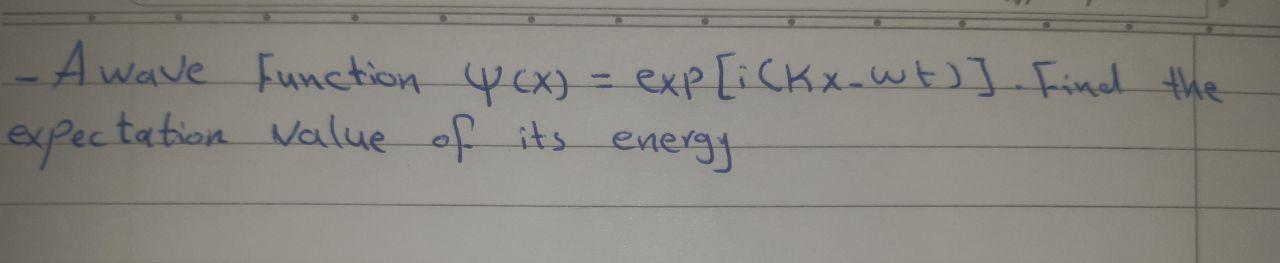 - A wave Function ψ(x) = exp[i(Kx-wt)]. Find the
expectation value of its energy